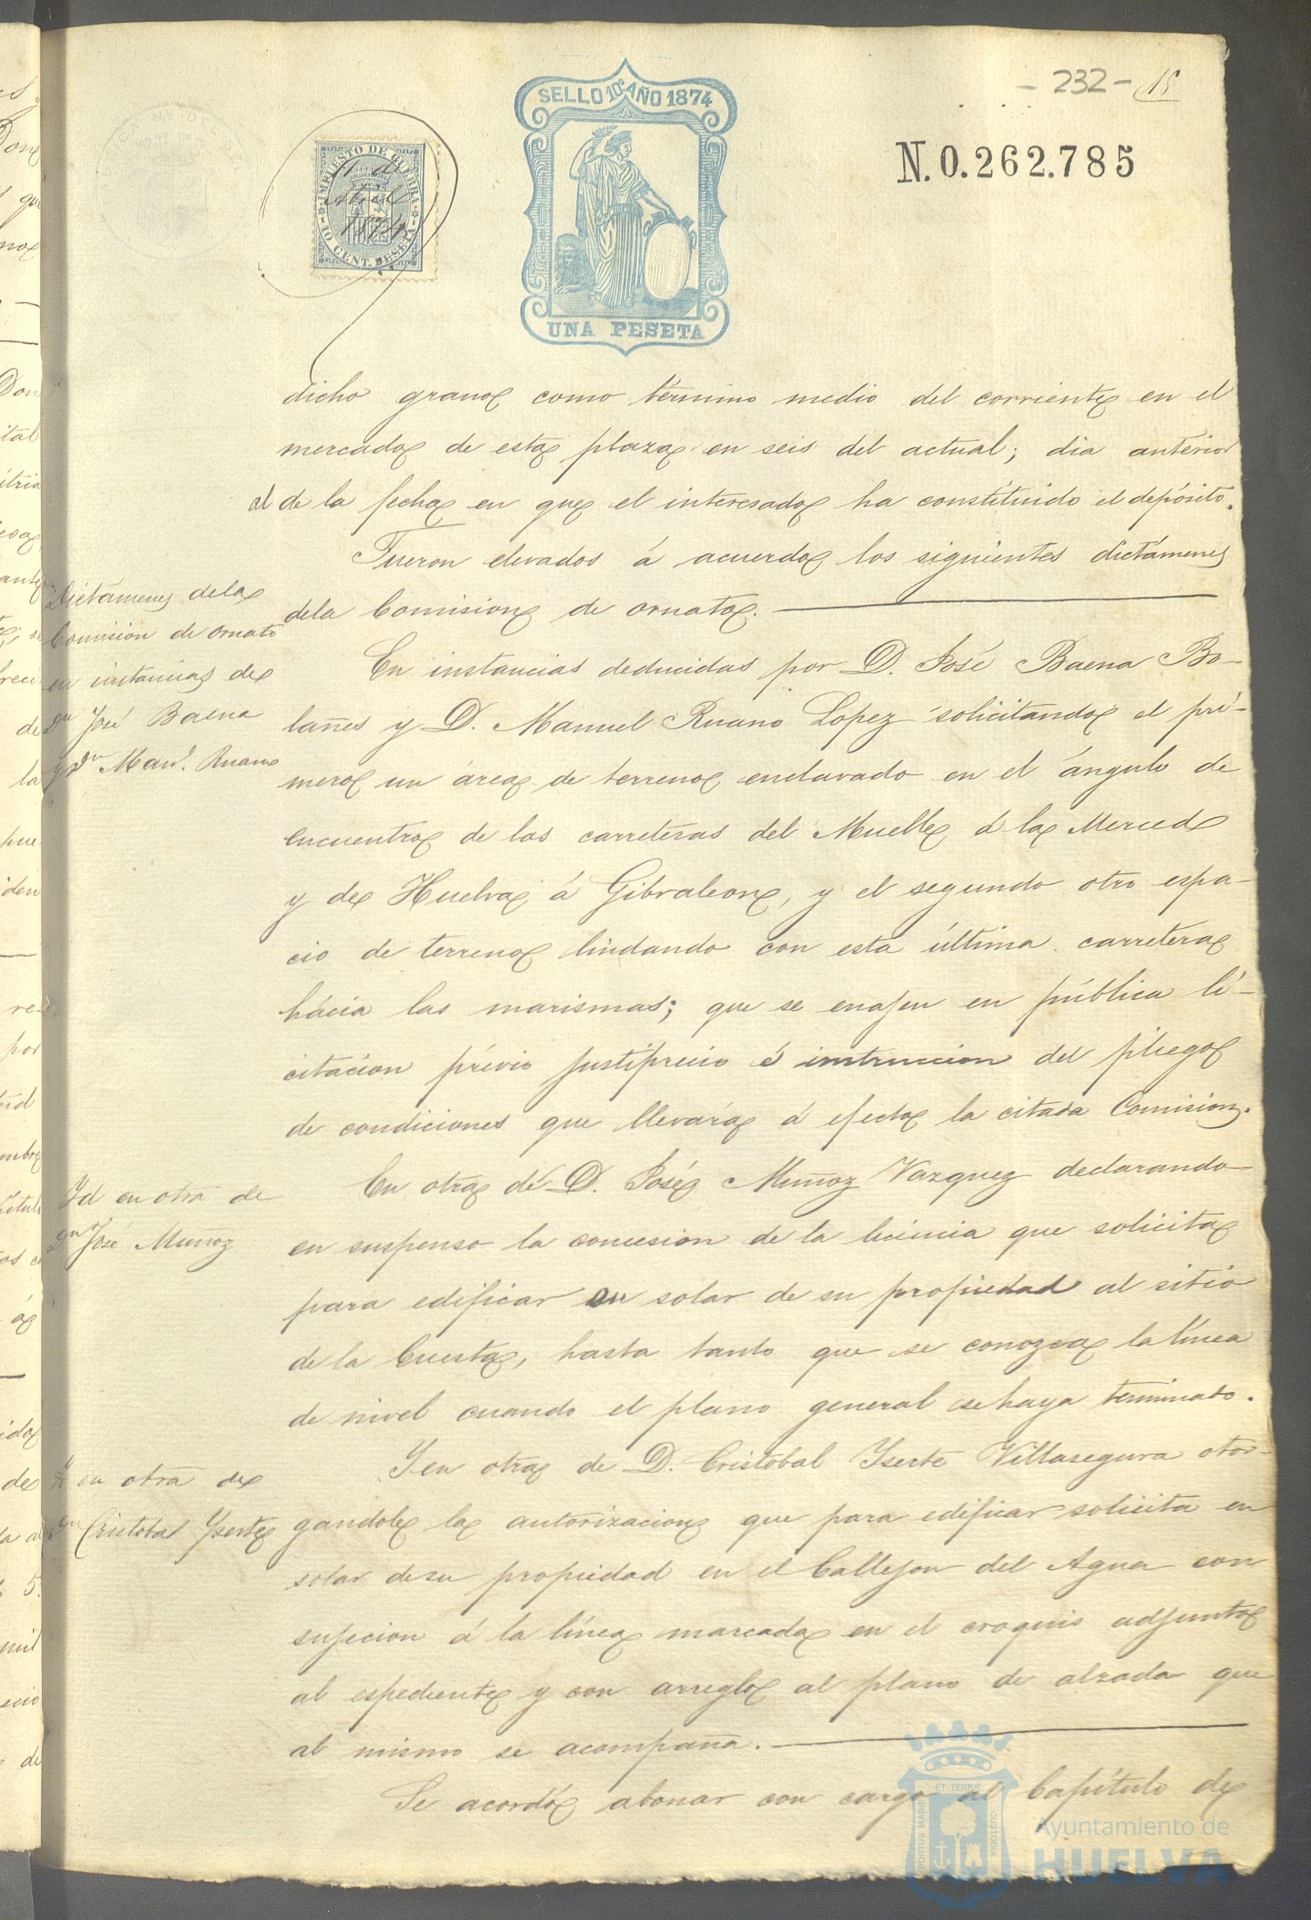 - 232 - 15
SELLO 10º AÑO 1874
UNA PESETA
IMPUESTO DE GUERRA
10 CENT. PESETA
11 de
Abril
1874
N. 0.262.785
dicho grano como término medio del corriente en el
mercado de esta plaza en seis del actual; dia anterior
al de la fecha en que el interesado ha constituido el depósito.
Fueron elevados á acuerdo los siguientes dictámenes
dela Comision de ornato.
Dictamenes dela
Comisión de ornato
en instancias de
Dn José Baena
y Dn Manl. Ruano
En instancias deducidas por D. José Baena Bo-
lañes y D. Manuel Ruano Lopez solicitando el pri-
mero un area de terreno enclavado en el ángulo de
encuentro de las carreteras del Muelle á la Merced
y de Huelva á Gibraleon, y el segundo otro espa-
cio de terreno lindando con esta última carretera
hácia las marismas; que se enajen en pública li-
citacion prévio justiprecio é instruccion del pliego
de condiciones que llevará á efecto la citada Comision.
Id en otra de
Dn José Muñoz
En otra de D. José Muñoz Vazquez declarando
en suspenso la concesion de la licencia que solicita
para edificar en solar de su propiedad al sitio
de la Cuesta, hasta tanto que se conozca la línea
de nivel cuando el plano general se haya terminado.
Y en otra de
Dn Cristobal Yserte
Y en otra de D. Cristobal Yserte Villasegura otor-
gandole la autorizacion que para edificar solicita en
solar de su propiedad en el Callejon del Agua con
sujecion á la línea marcada en el croquis adjunto
al espediente y con arreglo al plano de alzada que
al mismo se acompaña.
Se acordó abonar con cargo al Capítulo de
PORTUS MARIS ET TERRAE CUSTODIA
Ayuntamiento de
HUELVA